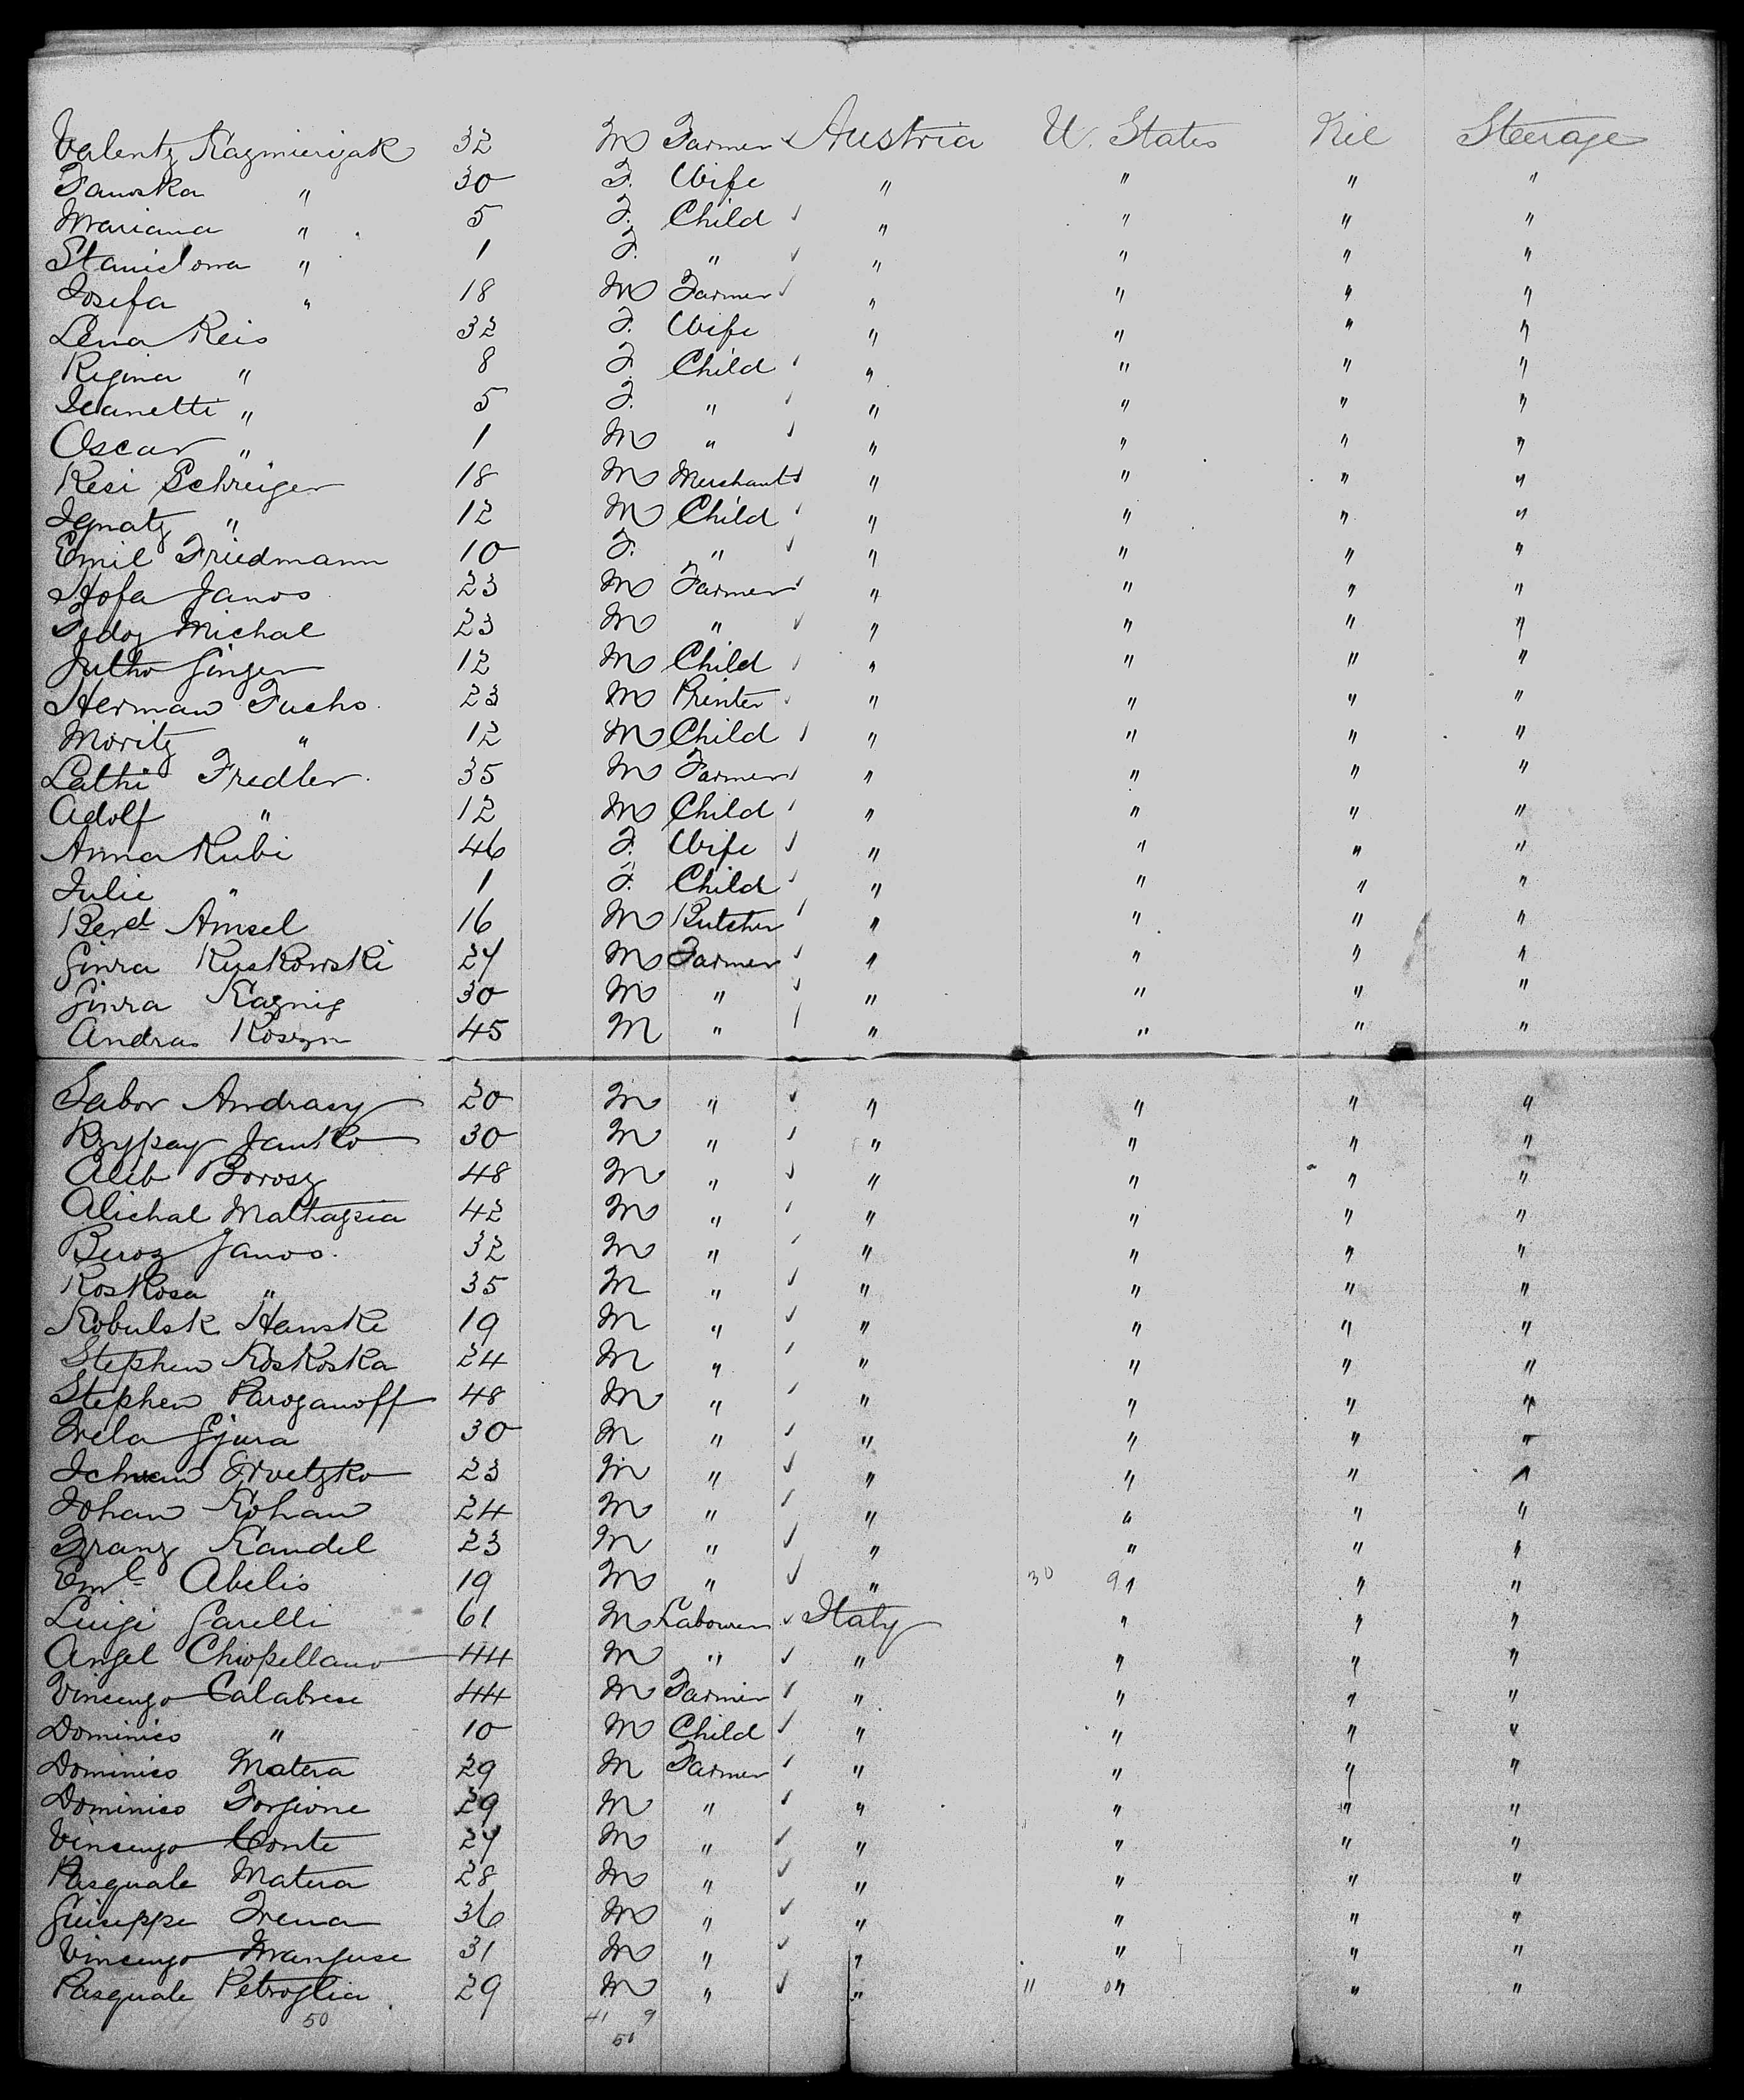 Valentz Kazmierizak 32 M Farmer ✓ Austria U. States Nil Steerage
Franska " 30 F. Wife " " " "
Mariana " 5 F. Child ✓ " " " "
Stanislowa " 1 F. " ✓ " " " "
Josefa " 18 M Farmer ✓ " " " "
Lena Reis 32 F. Wife " " " "
Regina " 8 F. Child ✓ " " " "
Jeanetti " 5 F. " ✓ " " " "
Oscar " 1 M " ✓ " " " "
Resi Schreiger 18 M Merchant ✓ " " " "
Ignatz " 12 M Child ✓ " " " "
Emil Friedmann 10 F. " ✓ " " " "
Hofa Janos 23 M Farmer ✓ " " " "
Michal 23 M " ✓ " " " "
12 M Child ✓ " " " "
Herman Fuchs 23 M Printer ✓ " " " "
Moritz " 12 M Child ✓ " " " "
Lathi Fredler 35 M Farmer ✓ " " " "
Adolf " 12 M Child ✓ " " " "
Anna Rubi 46 F. Wife ✓ " " " "
Julie " 1 F. Child ✓ " " " "
Berd Amsel 16 M Butcher ✓ " " " "
Ginra Kuskowski 24 M Farmer ✓ " " " "
Ginra Kaznig 30 M " ✓ " " " "
Andras 45 M " ✓ " " " "
Gabor Andrasy 20 M " ✓ " " " "
Janko 30 M " ✓ " " " "
Alib Borosz 48 M " ✓ " " " "
Alichal 42 M " ✓ " " " "
Beroz Janos 32 M " ✓ " " " "
Koskosa " 35 M " ✓ " " " "
Kobulsk Hanske 19 M " ✓ " " " "
Stephen Koskoska 24 M " ✓ " " " "
Stephen Paroganoff 48 M " ✓ " " " "
Gjura 30 M " ✓ " " " "
23 M " ✓ " " " "
Johan Kohan 24 M " ✓ " " " "
Franz Kandel 23 M " ✓ " " " "
Eml Abelis 19 M " ✓ " 30 91 " "
Luigi Garelli 61 M Labourer ✓ Italy " " "
Angel Chiopellano 44 M " ✓ " " " "
Vincenzo Calabrese 44 M Farmer ✓ " " " "
Dominico " 10 M Child ✓ " " " "
Dominico Matera 29 M Farmer ✓ " " " "
Dominico Forgione 29 M " ✓ " " " "
Vincenzo Conte 24 M " ✓ " " " "
Pasquale Matera 28 M " ✓ " " " "
Giuseppe Trena 36 M " ✓ " " " "
Vincenzo Manguse 31 M " ✓ " " " "
Pasquale Petroglia 29 M " ✓ " " " " "
50 41 9
50